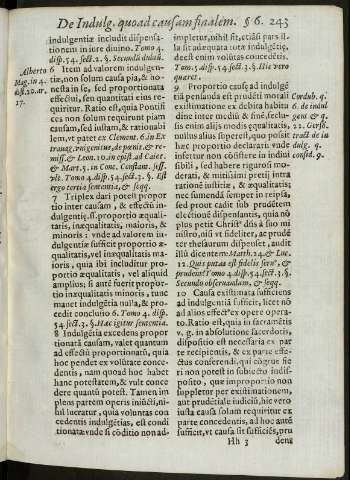 De Indulg. quoad causam finalem. § 6. 243
indulgentiæ includit dispensa-
tionem in iure diuino. Tomo 4.
disp. 54. sect. 2. §. Secundū dubiū.
Alberto
Mag. in 4.
dist. 20. ar.
17.
6 Item ad valorem indulgen-
tiæ, non solum causa pia, & ho-
nesta in se, sed proportionata
effectui, seu quantitati eius re-
quiritur. Ratio est, quia Pontifi
ces non solum requirunt piam
causam, sed iustam, & rationabi
lem, vt patet ex Clement. 6. in Ex
trauag. vnigenitus, de pœnit. & re-
miss. & Leon. 10. in post. ad Caiet.
& Mart. 5. in Conc. Constant. sess.
vlt. Tomo 4. disp. 54. sect. 3. §. Est
ergo tertia sententia, & seqq.
7 Triplex dari potest propor
tio inter causam, & effectū in-
dulgentię. ss. proportio æquali-
tatis, inæqualitatis, maioris, &
minoris: vnde ad valorem in-
dulgentiæ sufficit proportio æ-
qualitatis, vel inæqualitatis ma-
ioris, quia ibi includitur pro-
portio æqualitatis, vel aliquid
amplius; si autē fuerit propor-
tio inæqualitatis minoris, tunc
manet indulgētia nulla, & pro-
cedit conclusio 6. Tomo 4. disp.
54. sect. 3. §. Hac igitur sententia.
8 Indulgentia excedens propor
tionatā causam, valet quantum
ad effectū proportionatū, quia
hoc pendet ex volūtate conce-
dentis, nam quoad hoc habet
hanc potestatem, & vult conce
dere quantū potest. Tamen im
plens partem operis iniūcti, ni-
hil lucratur, quia voluntas con
cedentis indulgētias, est condi
tionata: vnde si cōditio non ad-
impletur, nihil fit, etiāsi pars il-
la sit adæquata toti indulgētię,
deest enim voluntas concedētis.
Tom. 4. disp. 54. sect. 3. §. Hic vero
quæret.
9 Proportio causę ad indulgē
Cordub. q.
6. de indul
gent. & q.
22. Gerso.
tract. de in
dulg. q.
consid. 9.
tiā pensanda est prudēti morali
existimatione ex debita habitu
dine inter mediū & finē, seclu-
sis enim alijs modis æqualitatis,
nullus alius superest, quo possit
hęc proportio declarari: vnde
infertur non cōsistere in indiui
sibili, sed habere rigorosi mo-
derati, & mitissimi pretij intra
rationē iustitiæ, & æqualitatis,
nec sumendā semper in terpsā,
sed prout cadit sub prudētem
electionē dispensantis, quia nō
plus petit Christus dñs à suo mi
nistro, nisi vt fideliter, ac prudē
ter thesaurum dispenset, audit
illū dicentem: Matth. 24. & Luc.
12. Quis putas est fidelis seruus, &
prudens? Tomo 4. disp. 54. sect. 3. §.
Secundo obseruandum, & seqq.
10 Causa existimata sufficiens
ad indulgentiā sufficit, licet nō
ad alios effectus ex opere opera-
to. Ratio est, quia in sacramētis
v. g. in absolutione sacerdotis,
dispositio est necessaria ex par
te recipientis, & ex parte effe-
ctus conferendi, qui cōgruè fie
ri non potest in subiecto indis-
posito, quæ improportio non
suppletur per existimationem,
aut prudētialē iudiciū, hic vero
iusta causa solum requiritur ex
parte concedentis, ad hoc autē
sufficit, vt causa sit sufficiēs, pru
Hh 3
dens